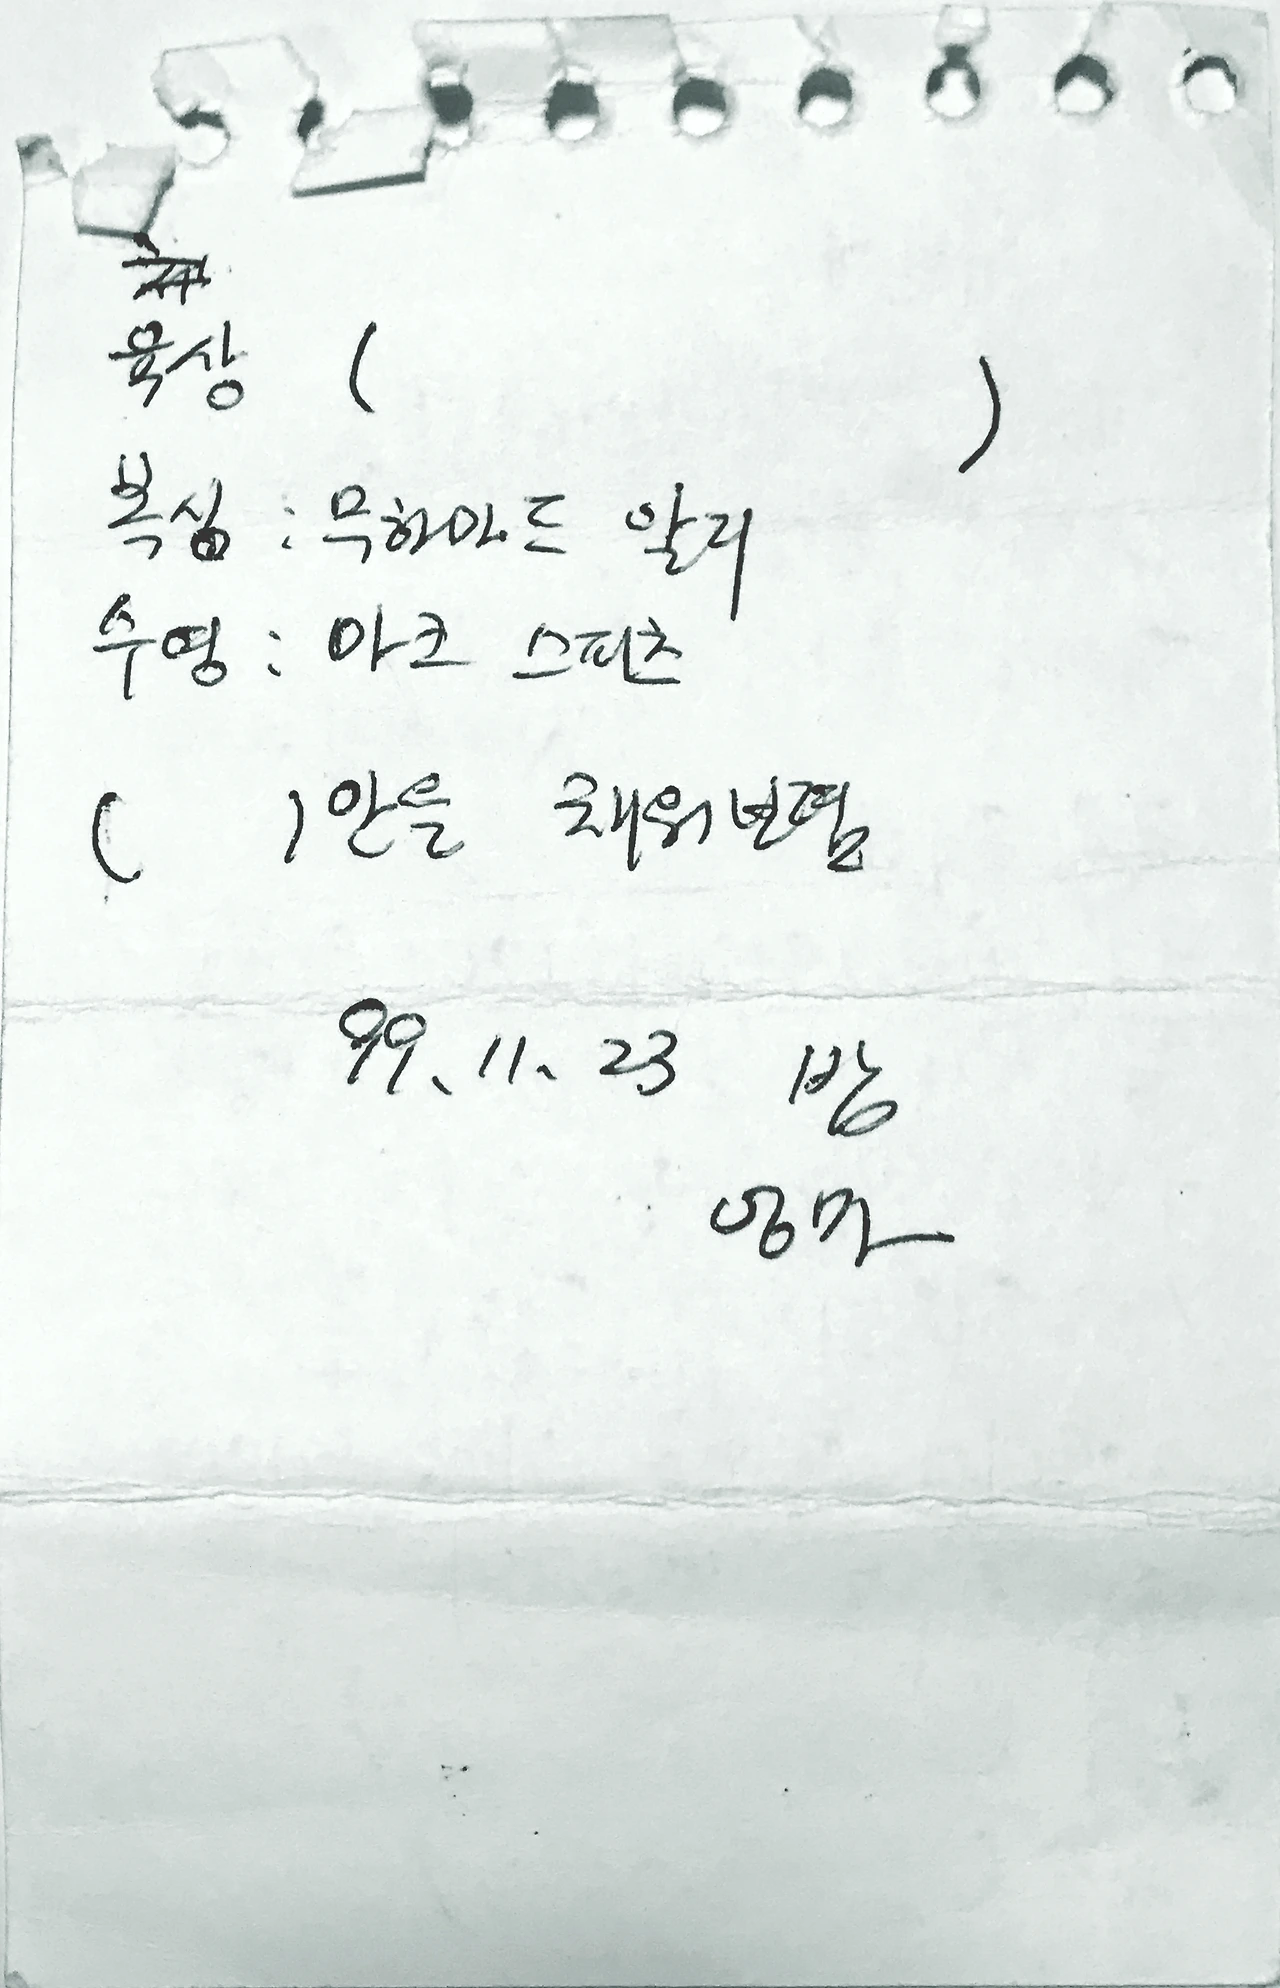 육상 (                    )
복싱 : 무하마드 알리
수영 : 마크 스피츠
(          ) 안을 채워보렴
99. 11. 23 밤